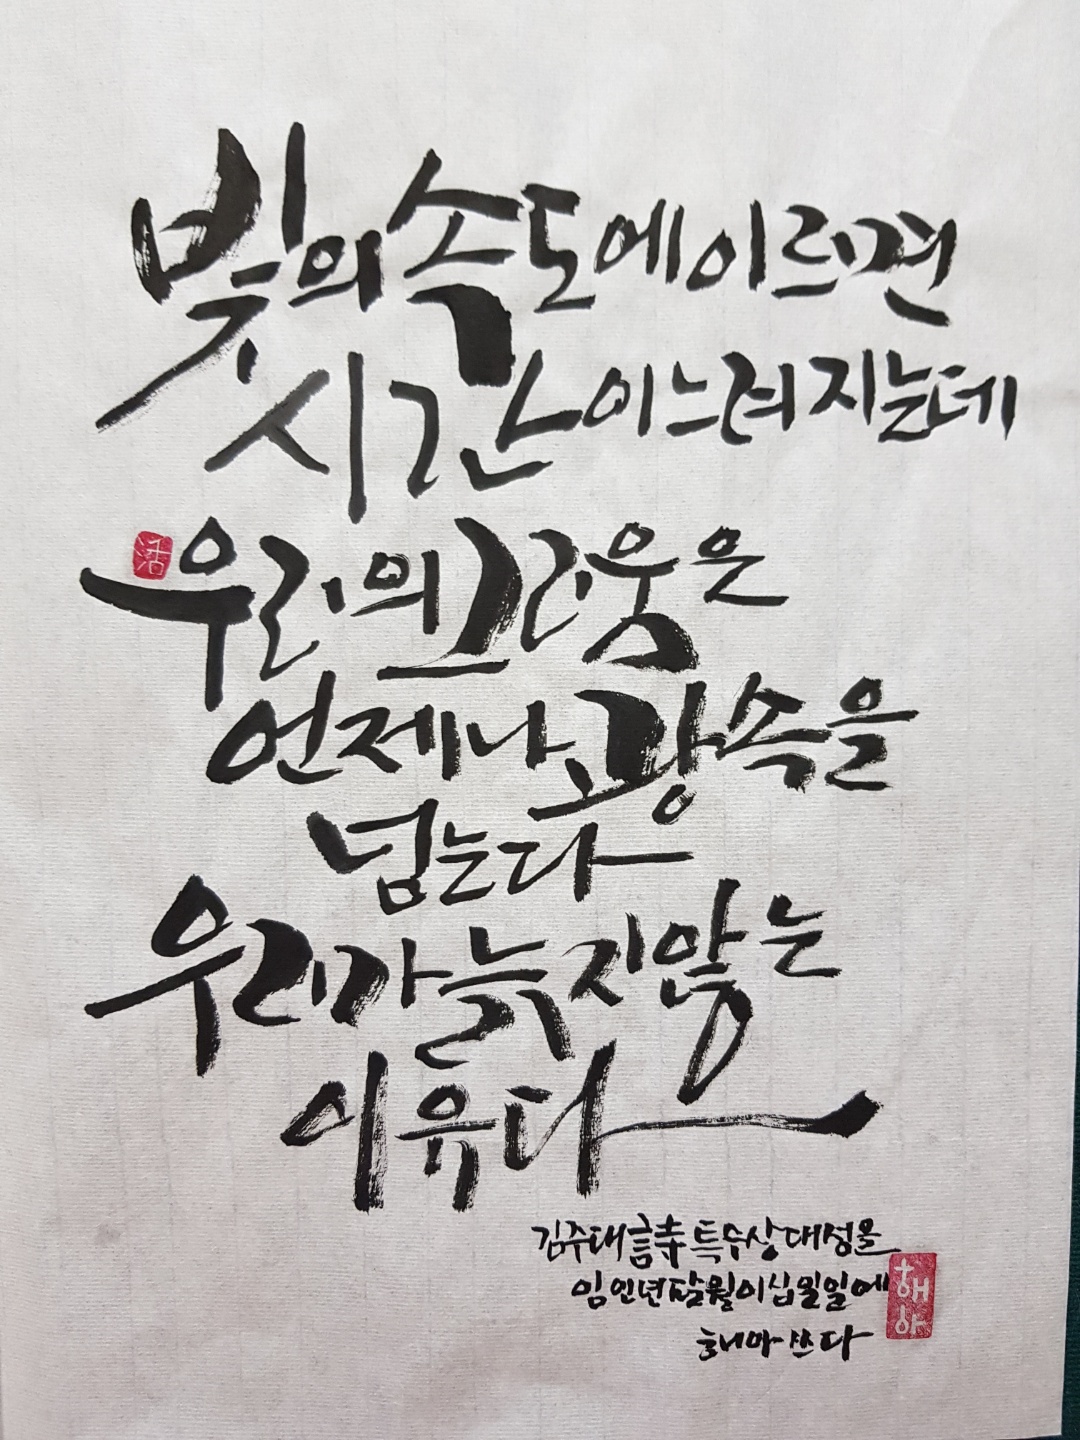 빛의 속도에 이르면
시간이 느려지는데
活
우리의 그리움은
언제나 광속을
넘는다
우리가 늙지 않는
이유다
김주태 詩 특수상대성을
임인년 팔월 이십일일에
해마 쓰다